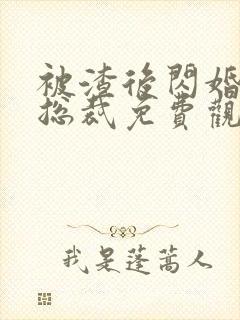 被渣後閃婚
总裁免費觀
我是蓬蒿人